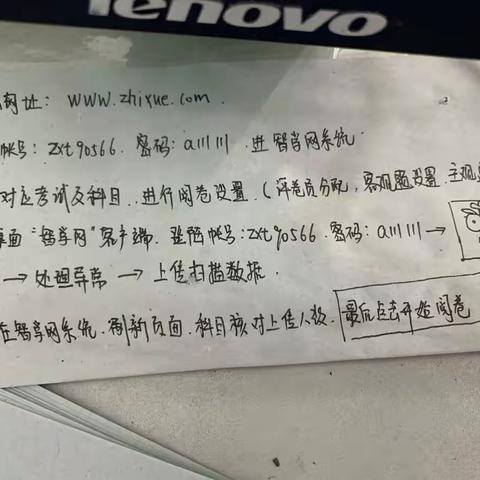 lenovo
网址: www.zhixue.com.
帐号: zxt90566. 密码: a111111 进智学网系统.
对应考试及科目..进行阅卷设置.(评卷员分配,客观题设置.主观
桌面"智学网"客户端.登陆帐号:zxt90566.密码: a111111 →
→ 处理异常 → 上传扫描数据.
在智学网系统.刷新页面.科目核对上传人数. 最后点击开始阅卷